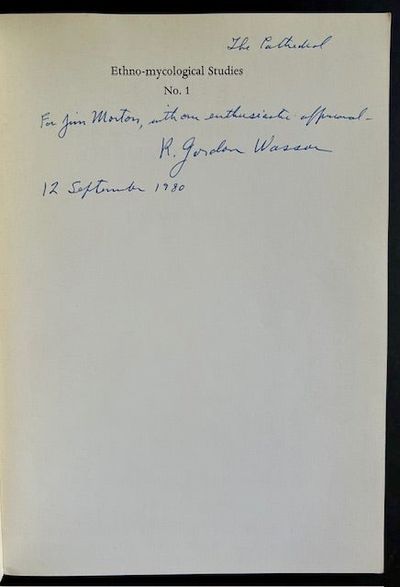 The Cathedral
Ethno-mycological Studies
No. 1
For Jim Morton, with our enthusiastic approval-
R. Gordon Wasson
12 September 1980